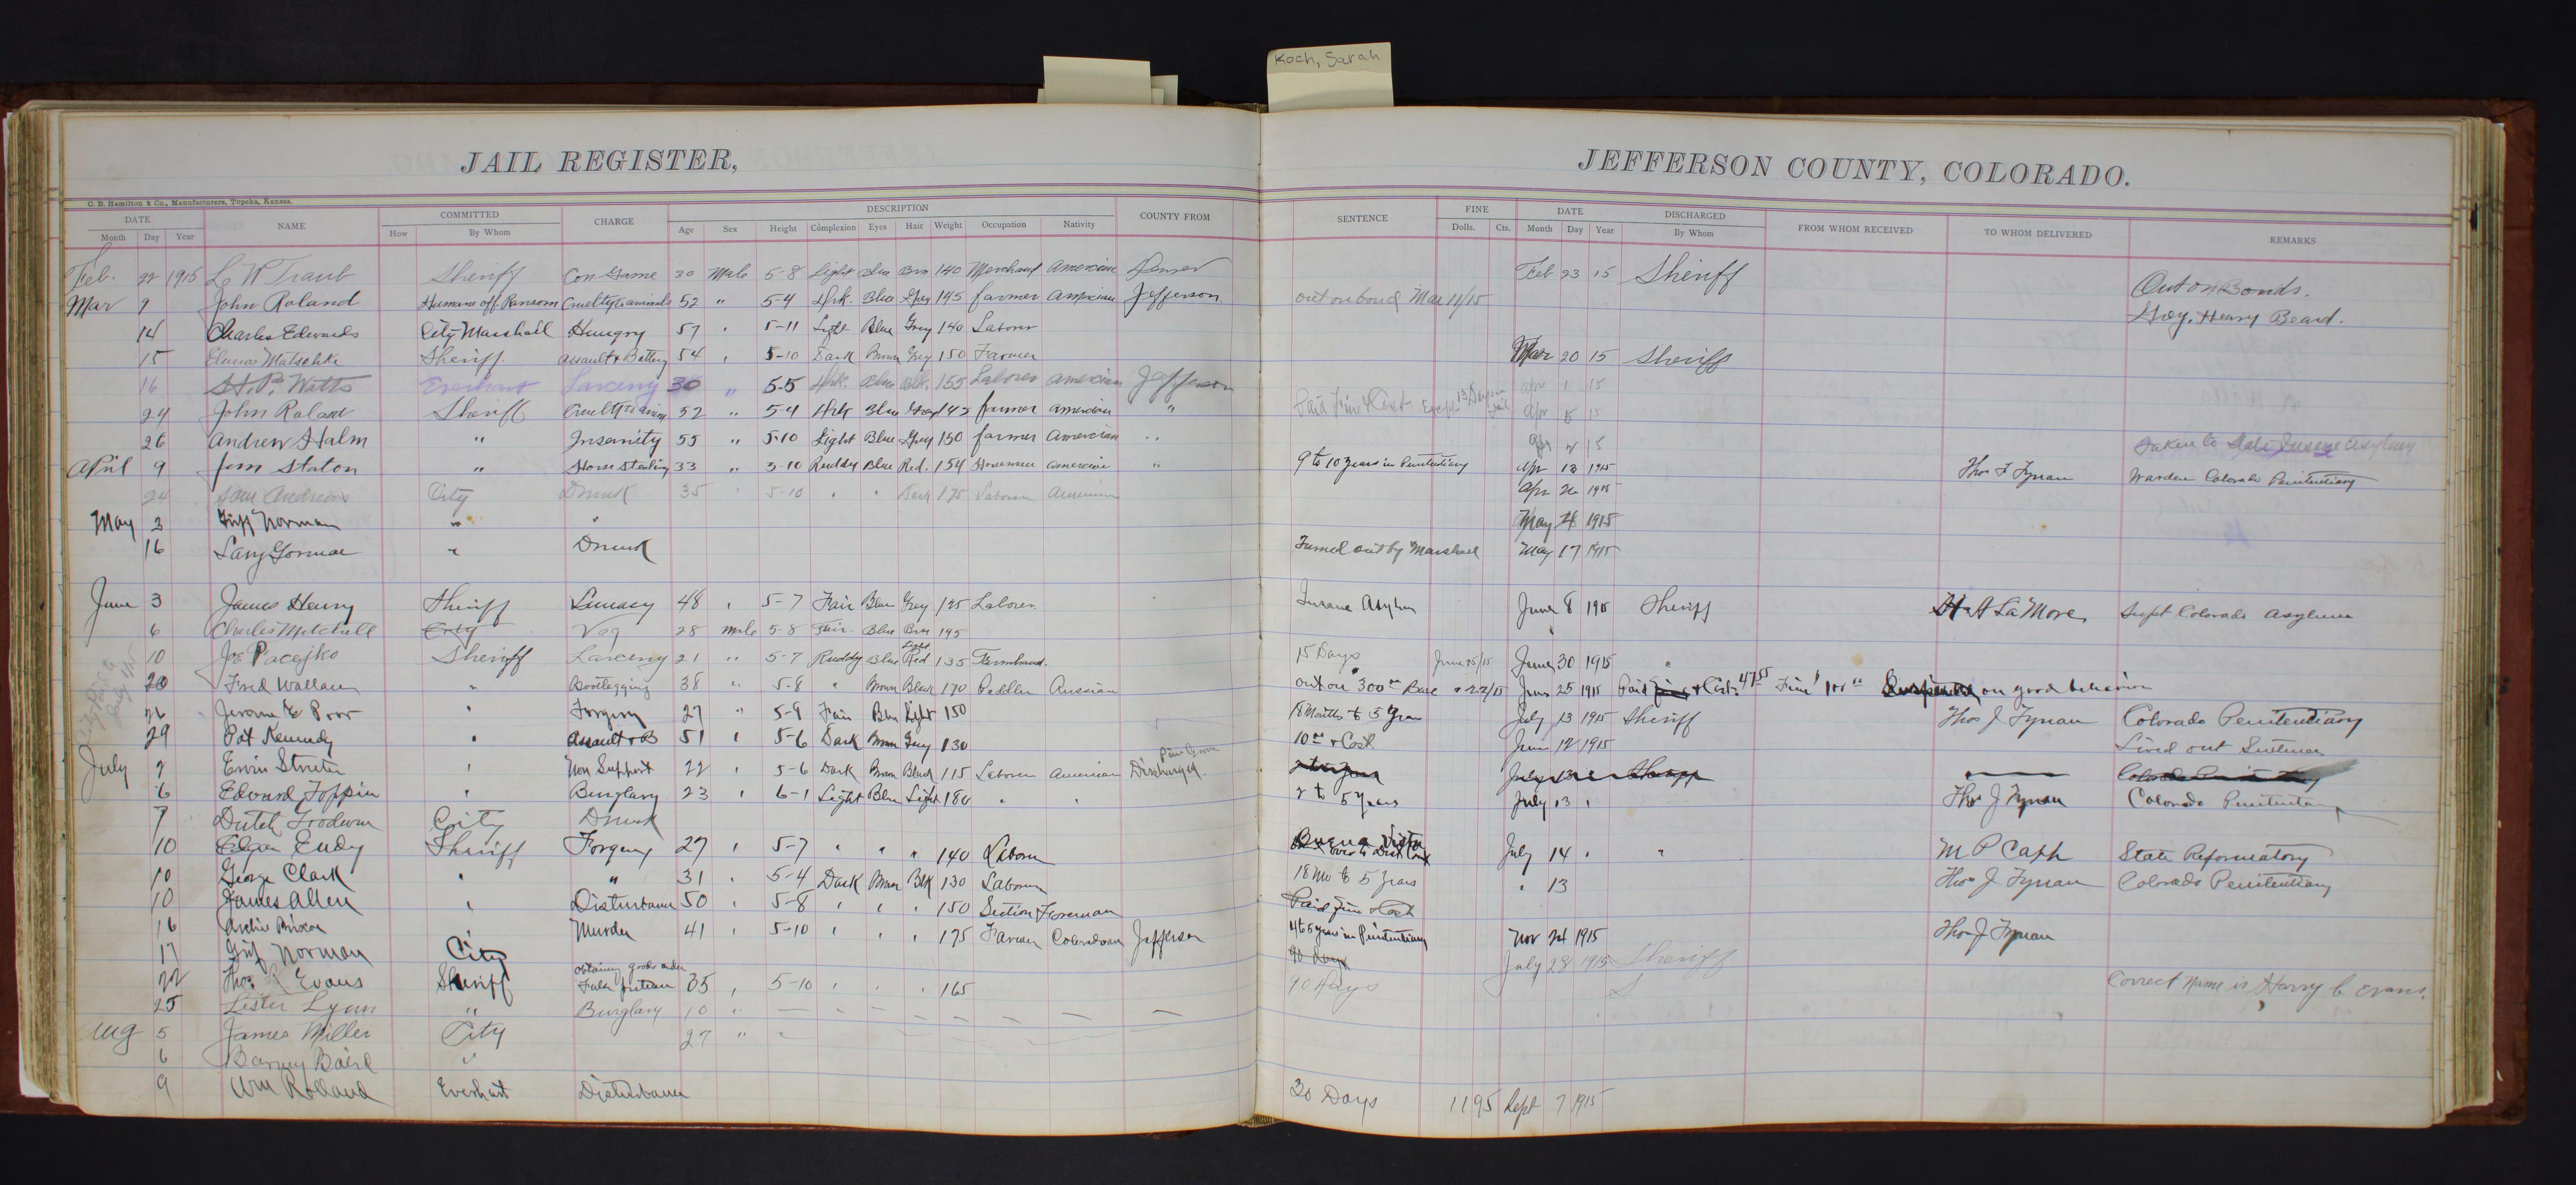 Koch, Sarah
JAIL REGISTER,
C. B. Hamilton & Co., Manufacturers, Topeka, Kansas.
DATE NAME COMMITTED CHARGE DESCRIPTION COUNTY FROM
Month Day Year How By Whom Age Sex Height Complexion Eyes Hair Weight Occupation Nativity
Feb. 22 1915 L W Traub Sheriff Con Game 30 Male 5-8 Light Blue Brn 140 Merchant American Denver
Mar 9 John Roland Humane off Ransom Cruelty to animals 52 " 5-4 Drk. Blue Grey 145 farmer American Jefferson
14 Charles Edwards City Marshall Hungry 57 " 5-11 Light Blue Grey 140 Laborer
15 Matschke Sheriff. Assault & Battery 54 " 5-10 Dark Brown Grey 150 Farmer
16 Watts Everhart Larceny 30 " 5-5 Drk. Blue Blk. 155 Laborer American Jefferson
24 John Roland Sheriff Cruelty to animl 52 " 5-4 Drk Blue Grey 145 farmer American "
26 Andrew Halm " Insanity 55 " 5-10 Light Blue Grey 150 farmer American "
April 9 Jim Staton " Horse Stealing 33 " 5-10 Ruddy Blue Red. 154 Horseman American "
24 Sam Andrews City Drunk 35 " 5-10 " " Dark 175 Laborer American
May 3 Griff Norman " "
16 Larry Gorman " Drunk
June 3 James Henry Sheriff Lunacy 48 " 5-7 Fair Blue Grey 125 Laborer
6 Charles Mitchell City Vag 28 male 5-8 Fair Blue Brn 145
10 Joe Pacejko Sheriff Larceny 21 " 5-7 Ruddy Blue Light Red 135 Farmhand.
20 Fred Wallace " Bootlegging 38 " 5-8 " Brown Black 170 Peddler Russian
26 Jerome E Poor " Forgery 27 " 5-9 Fair Blue Light 150
29 Pat Kennedy " Assault & B 51 " 5-6 Dark Brown Grey 130
July 2 Ervin Streeter " Non Support 22 " 5-6 Dark Brown Black 115 Laborer American Discharged.
6 Edward Toppin " Burglary 23 " 6-1 Light Blue Light 180 " "
7 Dutch Goodwin City Drunk
10 Eudy Sheriff Forgery 27 " 5-7 " " " 140 Laborer
10 George Clark " " 31 " 5-4 Dark Brown Blk 130 Laborer
10 James Allen " Disturbance 50 " 5-8 " " " 150 Section Foreman
16 Archie " Murder 41 " 5-10 " " " 175 Farmer Coloradoan Jefferson
17 Grif Norman City
22 Thos R Evans Sheriff obtaining goods under False pretense 35 " 5-10 " " " 165
25 Lester Lynn " Burglary 10 " — — — — — — — —
Aug 5 James Miller City 27 " "
6 Barney Baird "
9 Wm Rolland Everhart Disturbance
JEFFERSON COUNTY, COLORADO.
SENTENCE FINE DATE DISCHARGED FROM WHOM RECEIVED TO WHOM DELIVERED REMARKS
Dolls. Cts. Month Day Year By Whom
Feb 23 15 Sheriff Out on Bonds.
out on bond Mar 11/15 Grey, Heavy Beard.
Mar 20 15 Sheriff
Apr 1 15
Paid Fine & Cost Except 13 Days in Jail Apr 5 15
Apr 2 15 Taken to State Insane Asylum
9 to 10 years in Penitentiary Apr 13 1915 Thos J Tynan Warden Colorado Penitentiary
Apr 1915
May 4 1915
Turned out by Marshall May 17 1915
Insane Asylum June 8 1915 Sheriff H A LaMore Supt Colorado Asylum
15 Days June 15/15 June 30 1915 "
out on 300 00 " 22/15 June 25 1915 Paid fine & Costs 47 55 Fine 100 00 Suspended on good behavior
18 Months to 5 years July 13 1915 Sheriff Thos J Tynan Colorado Penitentiary
10 00 & Cost. June 12 1915 Lived out Sentence
July 13 Sheriff
2 to 5 years July 13 " Thos J Tynan Colorado Penitentiary
Buena Vista over to Dist Court July 14 " " M P Capp State Reformatory
18 Mo to 5 years " 13 Thos J Tynan Colorado Penitentiary
Paid Fine & Cost
4 to 5 years in Penitentiary Nov 24 1915 Thos J Tynan
90 days July 28 1915 Sheriff
90 days Correct name is Harry C Evans.
30 Days 11 95 Sept 7 1915